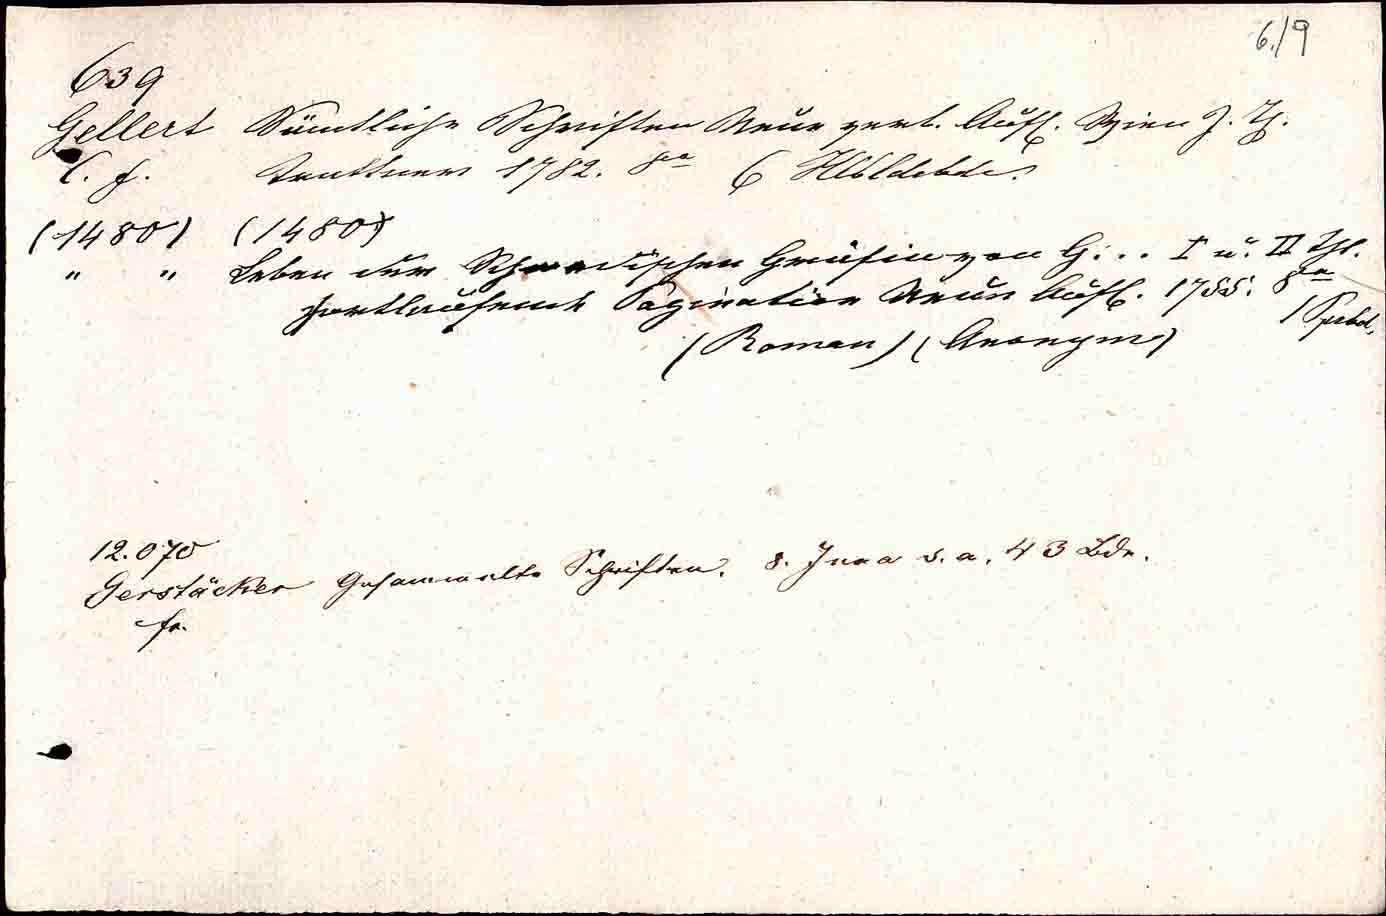 6./9
639
Gellert Sämtliche Schriften Neue verb. Aufl. Wien J. Th.
C. f. Trattnern 1782. 8vo 6 Hlbldrbde.
(1480) (1480)
" " Leben der Schwedischen Gräfin von G... I u. II Thl.
fortlaufende Pagination Neue Aufl. 1755. 8vo
(Roman) (Anonym)
12.070
Gerstäcker Gesammelte Schriften. 8. Jena s. a. 43 Bde.
fr.